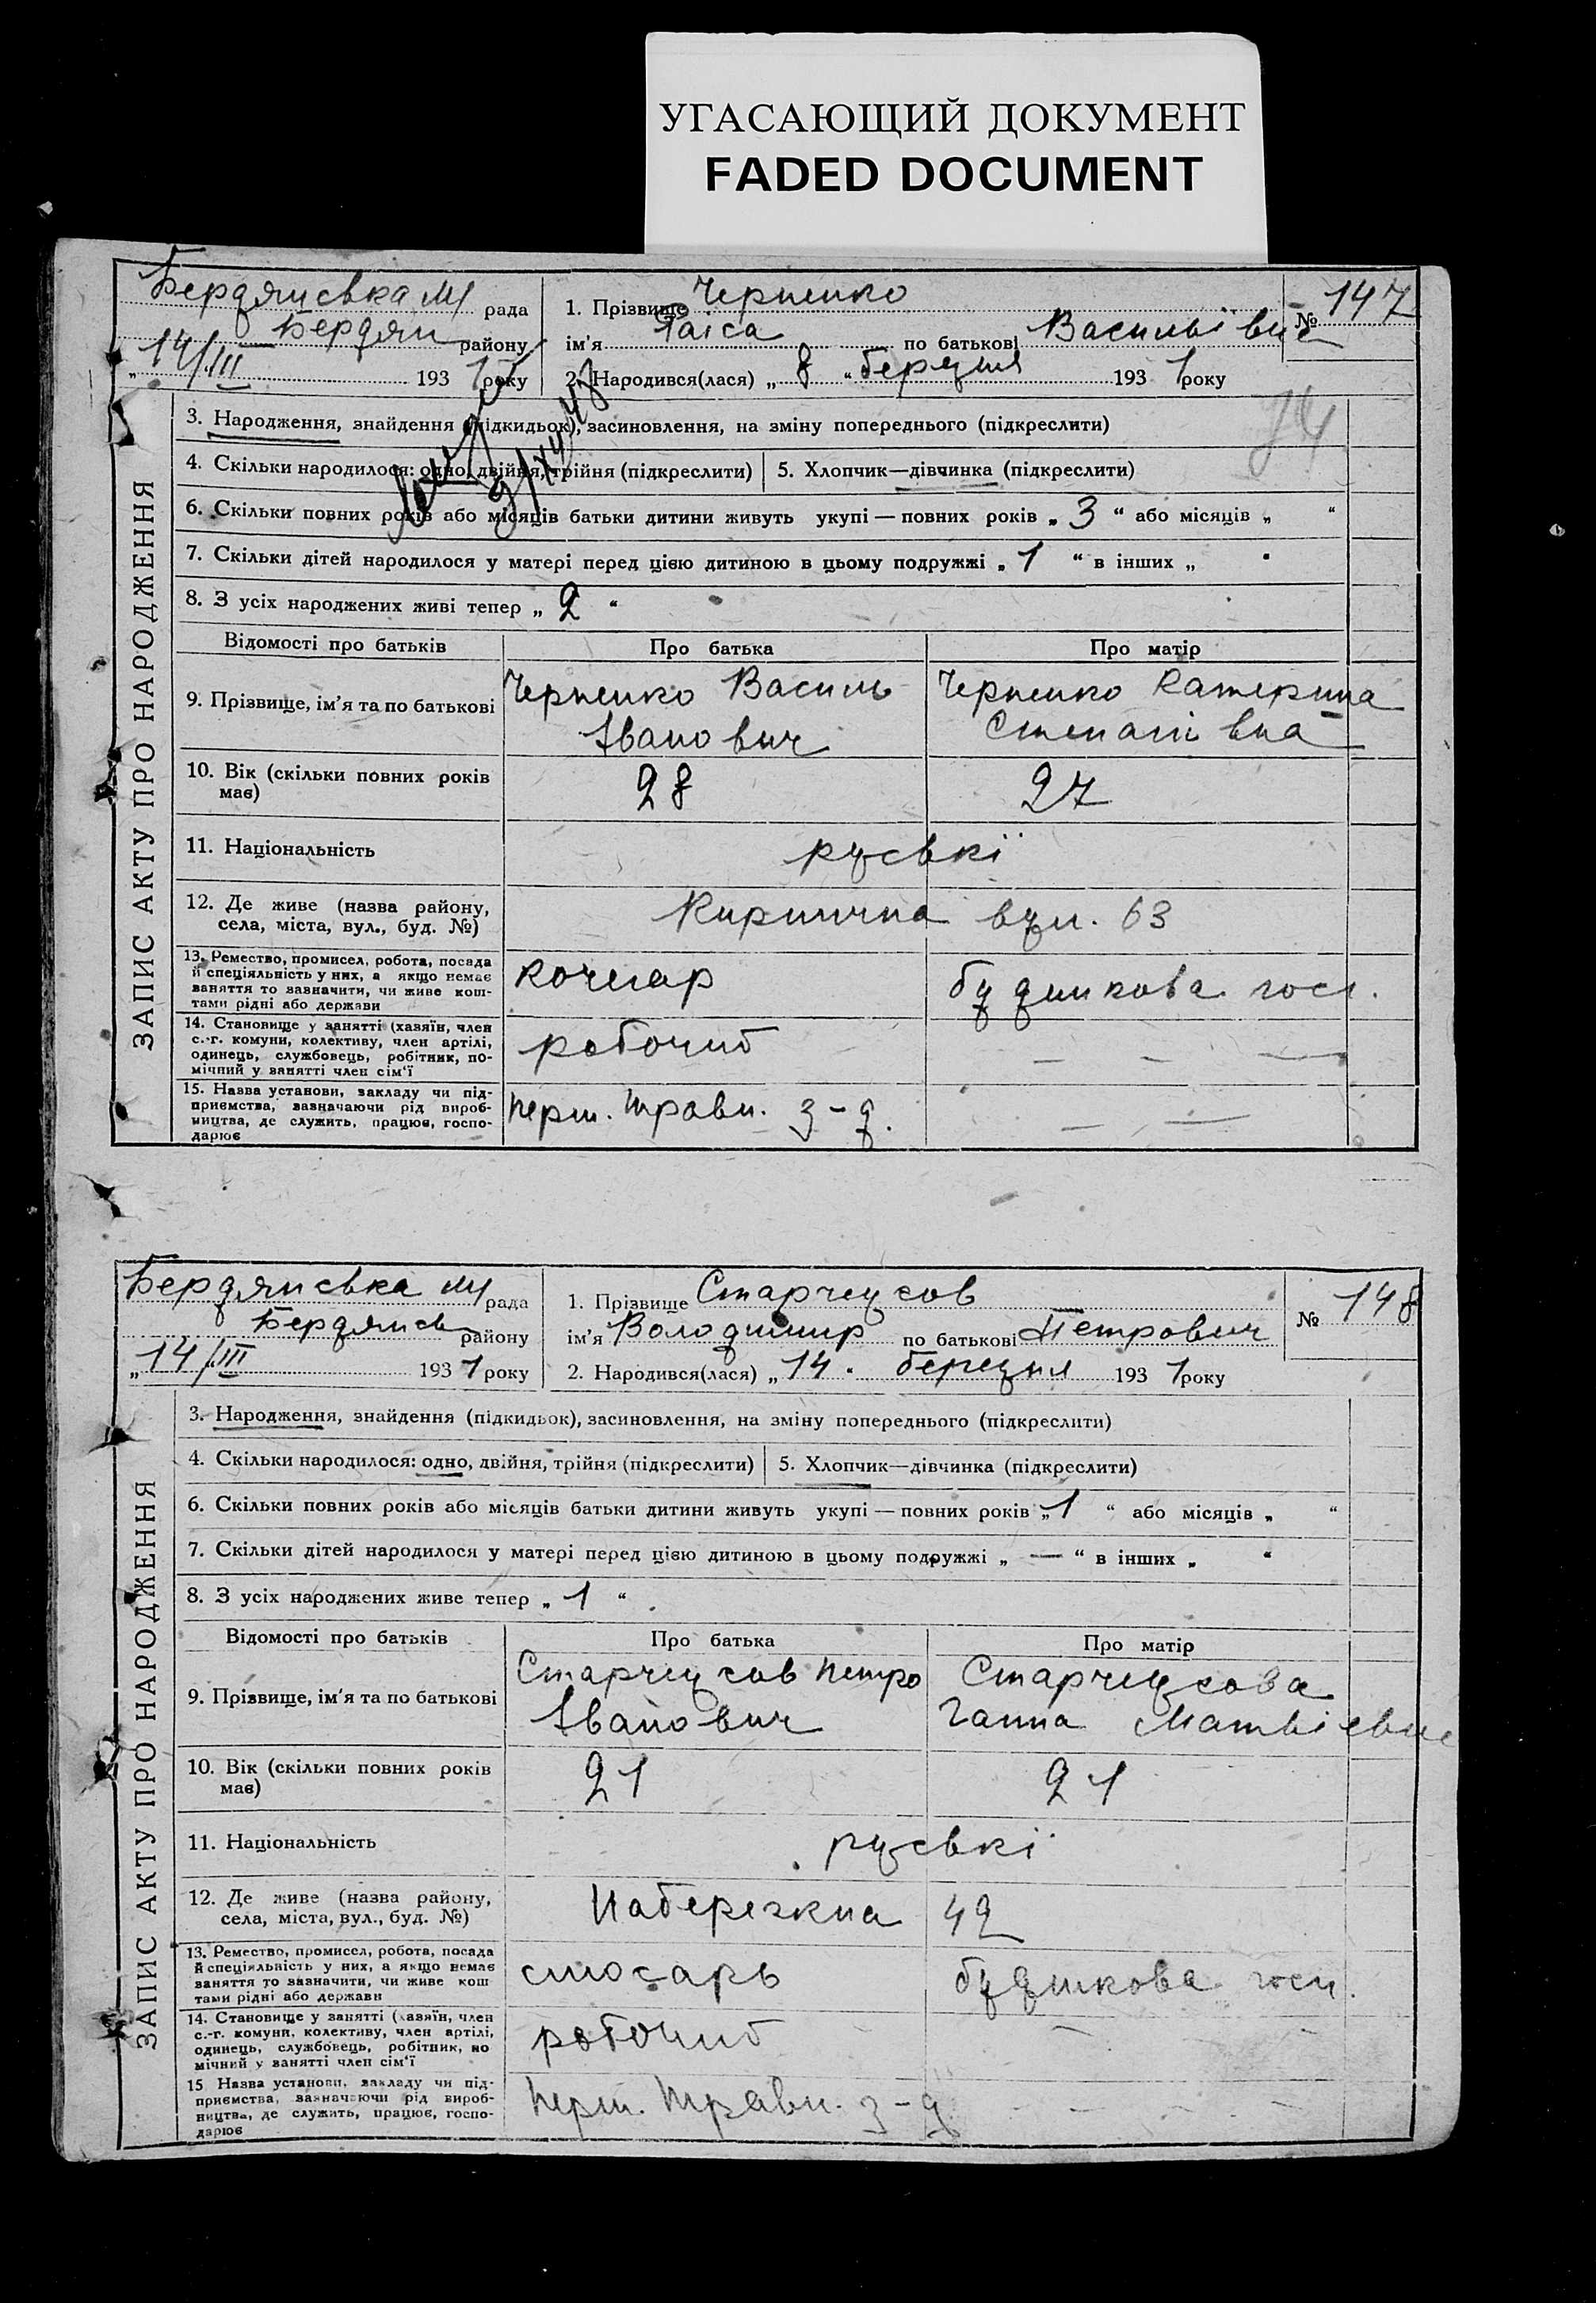 УГАСАЮЩИЙ ДОКУМЕНТ
FADED DOCUMENT
Бердянська М/ рада
Бердян району
„14/III 1931 року
1. Прізвище Черненко
ім'я Раіса по батькові Васильівна
2. Народився(лася) „8“ березня 1931 року
№ 147
ЗАПИС АКТУ ПРО НАРОДЖЕННЯ
3. Народження, знайдення (підкидьок), засиновлення, на зміну попереднього (підкреслити)
14
4. Скільки народилося: одно, двійня, трійня (підкреслити) 5. Хлопчик—дівчинка (підкреслити)
6. Скільки повних років або місяців батьки дитини живуть укупі — повних років „ 3 “ або місяців „ “
7. Скільки дітей народилося у матері перед цією дитиною в цьому подружжі „ 1 “ в інших „ “
8. З усіх народжених живі тепер „ 2 “
Відомості про батьків Про батька Про матір
9. Прізвище, ім'я та по батькові
Черненко Василь
Іванович
Черненко Катерина
Степанівна
10. Вік (скільки повних років
має)
28 27
11. Національність руські
12. Де живе (назва району,
села, міста, вул., буд. №)
Кирпична вул. 63
13. Ремество, промисел, робота, посада
й спеціяльність у них, а якщо немає
заняття то зазначити, чи живе кош-
тами рідні або держави
кочегар будинкова госп.
14. Становище у занятті (хазяїн, член
с.-г. комуни, колективу, член артілі,
одинець, службовець, робітник, по-
мічний у занятті член сім'ї
робочий — — —
15. Назва установи, закладу чи під-
приємства, зазначаючи рід вироб-
ництва, де служить, працює, госпо-
дарює
Перш. Травн. з-д. — —
Бердянська М/ рада
Бердянськ району
„14/III 1931 року
1. Прізвище Старчеусов
ім'я Володимир по батькові Петрович
2. Народився(лася) „14“ березня 1931 року
№ 148
ЗАПИС АКТУ ПРО НАРОДЖЕННЯ
3. Народження, знайдення (підкидьок), засиновлення, на зміну попереднього (підкреслити)
4. Скільки народилося: одно, двійня, трійня (підкреслити) 5. Хлопчик—дівчинка (підкреслити)
6. Скільки повних років або місяців батьки дитини живуть укупі — повних років „ 1 “ або місяців „ “
7. Скільки дітей народилося у матері перед цією дитиною в цьому подружжі „ — “ в інших „ “
8. З усіх народжених живе тепер „ 1 “
Відомості про батьків Про батька Про матір
9. Прізвище, ім'я та по батькові
Старчеусов Петро
Іванович
Старчеусова
Ганна Матвієвна
10. Вік (скільки повних років
має)
21 21
11. Національність руські
12. Де живе (назва району,
села, міста, вул., буд. №)
Набережна 42
13. Ремество, промисел, робота, посада
й спеціяльність у них, а якщо немає
заняття то зазначити, чи живе кош
тами рідні або держави
слюсарь будинкова госп.
14. Становище у занятті (хазяїн, член
с.-г. комуни, колективу, член артілі,
одинець, службовець, робітник, по
мічний у занятті член сім'ї
робочий — —
15 Назва установи, закладу чи під-
приємства, зазначаючи рід вироб-
ництва, де служить, працює, госпо-
дарює
Перш. Травн. з-д — — — —